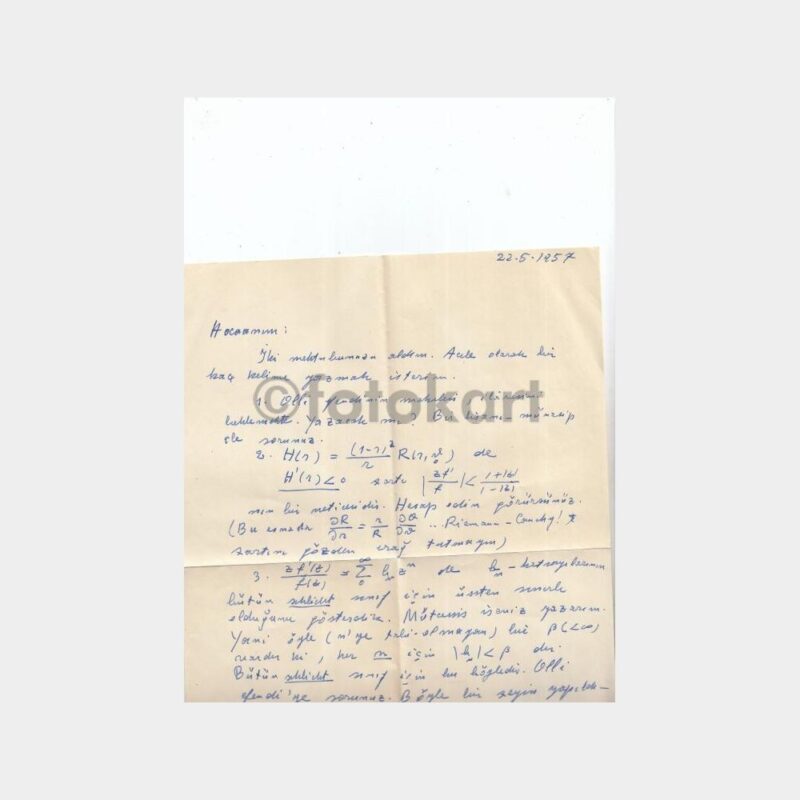 22-5-1957
Hocanım:
İki mektubunuzu aldım. Acele olarak bir
kaç kelime yazmak isterim.
©fotokart
1. Olli Efendi'nin makalesi
beklemekte. Yazacak mı? Bu lisanı münasip
ile sorunuz.
2. H(r) = (1-r)²/r R(r,ϑ₀) de
H'(r) < 0 şartı |zf'/f| < 1+|z|/1-|z|
nın bir neticesidir. Hesap edin görürsünüz.
(Bu esnada ∂R/∂r = r/R ∂θ/∂ϑ .. Riemann-Cauchy!
şartını gözden ırağ tutmayın)
3. zf'(z)/f(z) = ∑₀^∞ bₙzⁿ de bₙ-katsayılarının
bütün schlicht sınıf için üssten sınırlı
olduğunu gösterdim. Mütenis iseniz yazarım.
Yani öyle (n'ye tabi olmayan) bir β(<∞)
vardır ki, her n için |bₙ| < β dir.
Bütün schlicht sınıf için bu böyledir. Olli
efendi'ye sorunuz. Böyle bir şeyin yapılab-